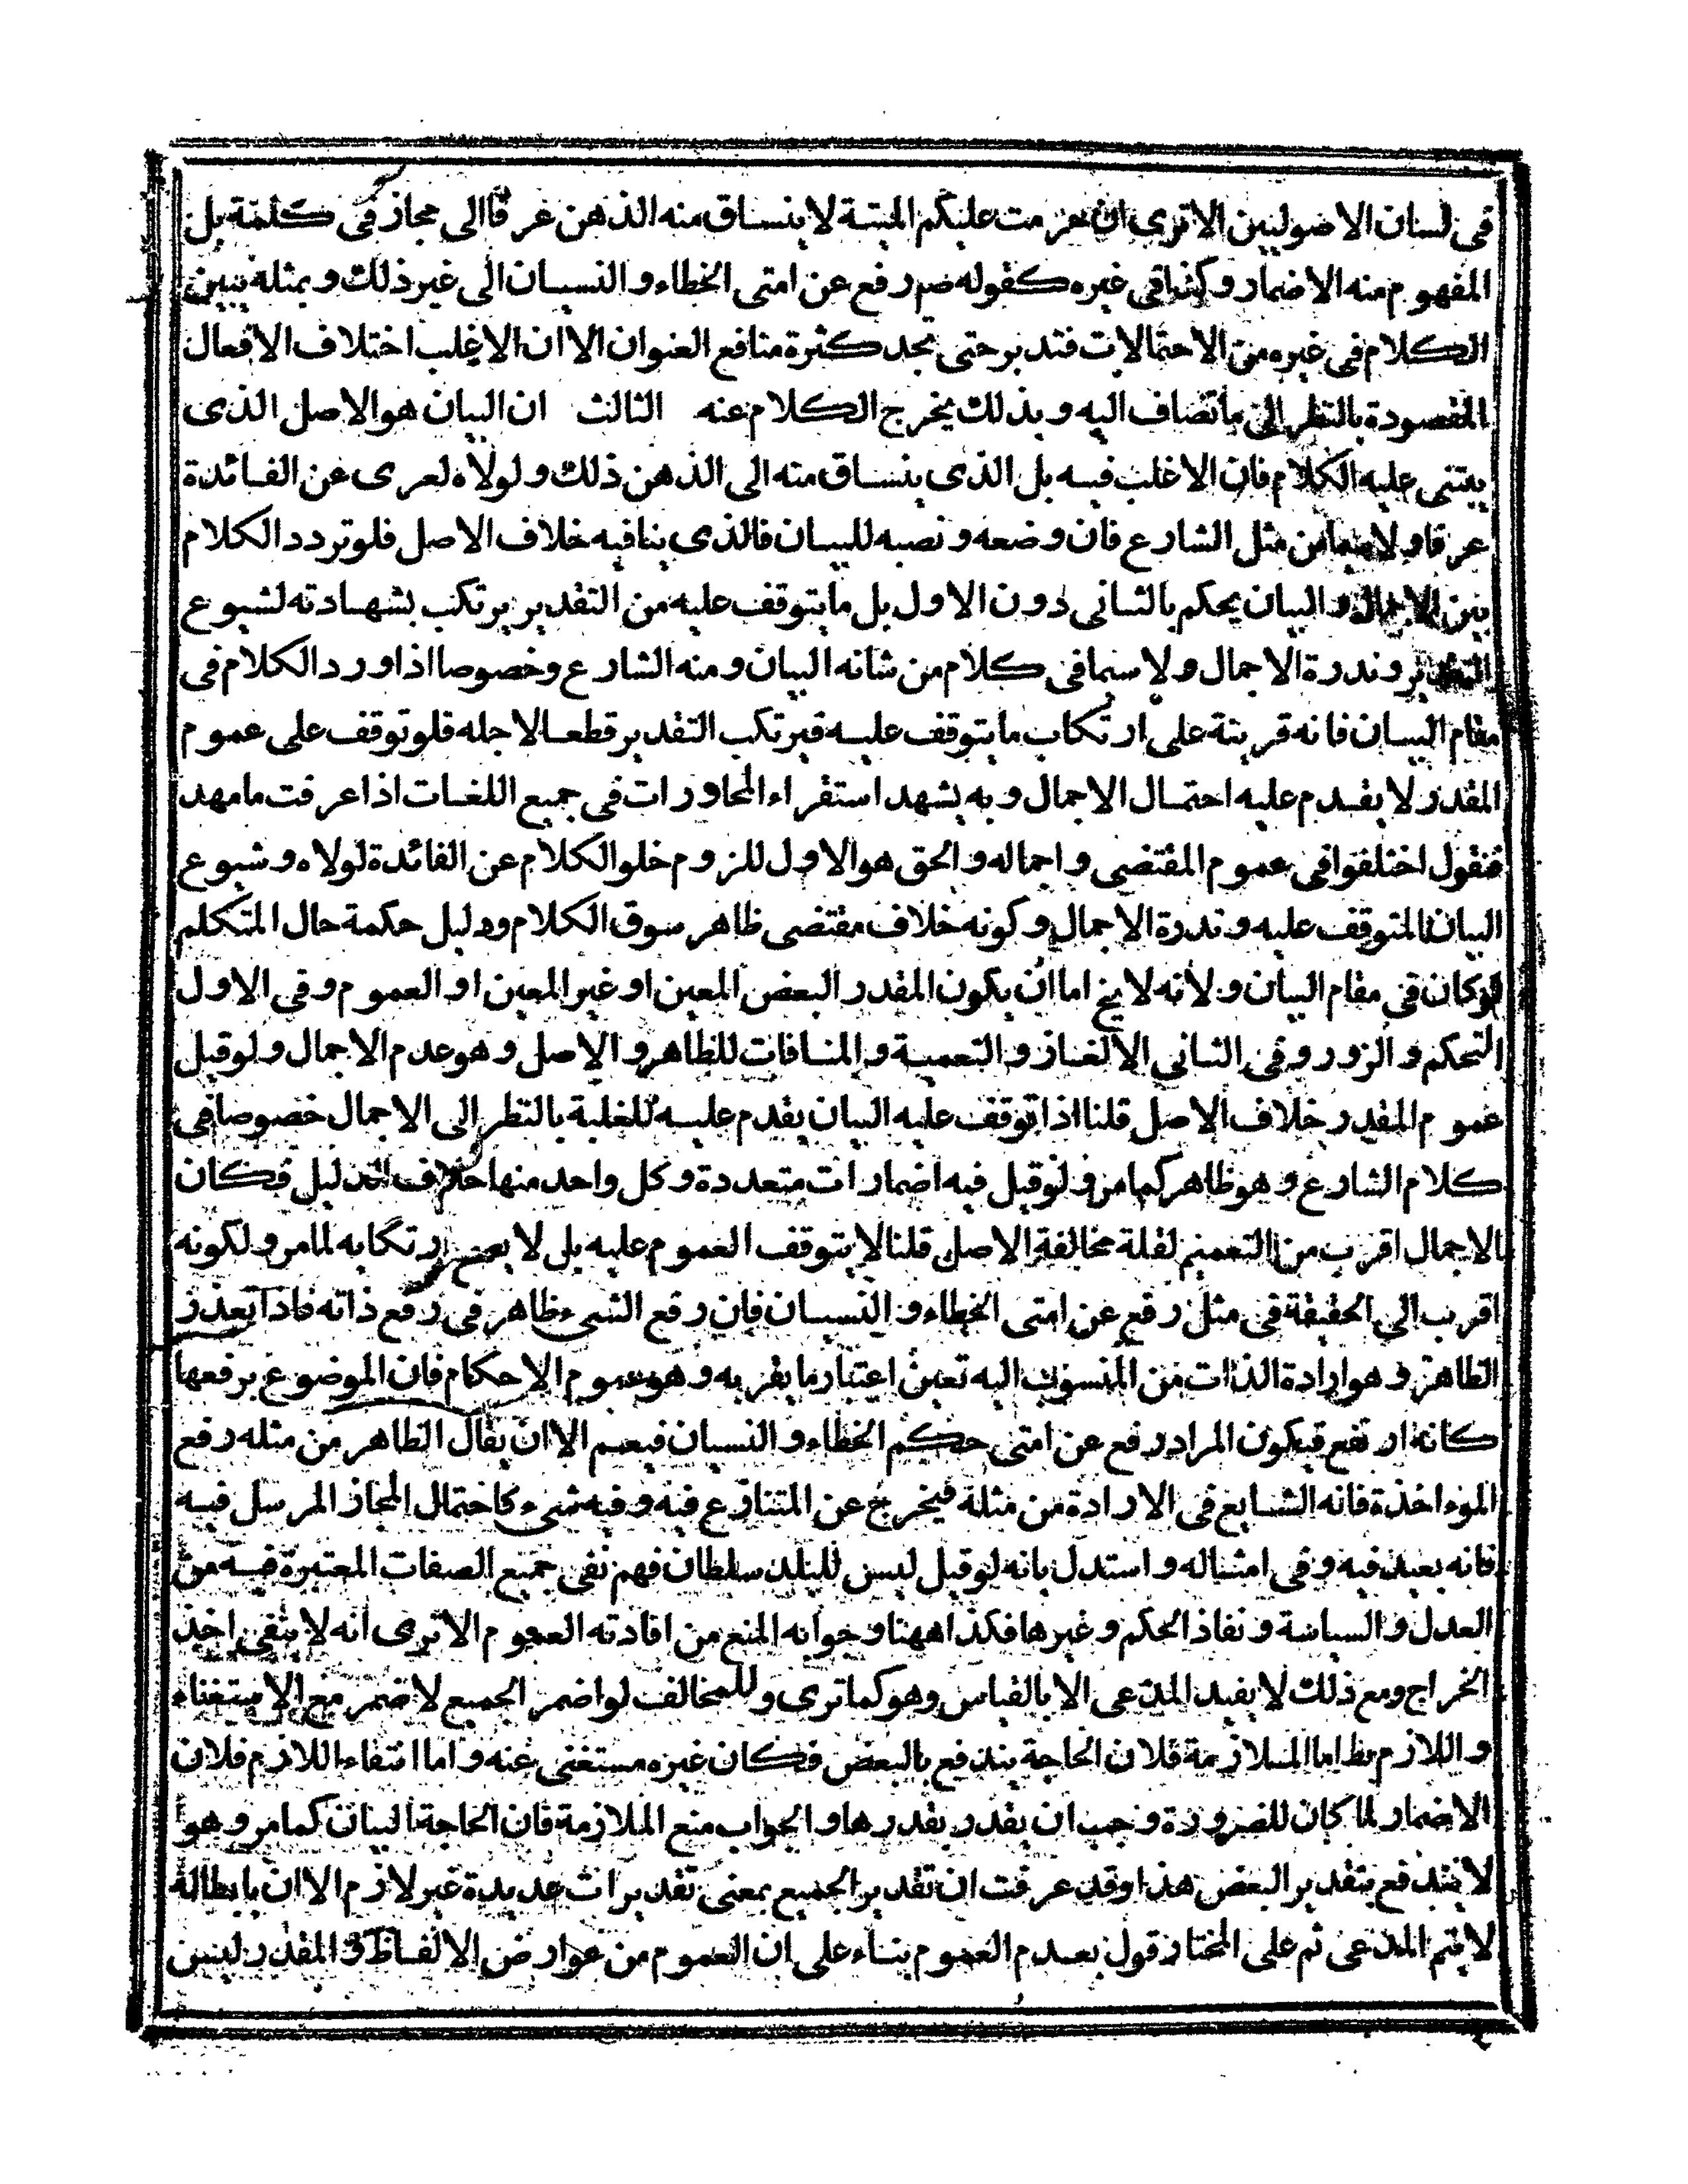 فى لسان الاصوليين الاترى ان حرمت عليكم الميتة لا ينساق منه الذهن عرفا الى مجاز فى كلمة بل
المفهوم منه الاضمار وكذا فى غيره كقوله صم رفع عن امتى الخطاء و النسيان الى غير ذلك و بمثله يتبين
الكلام فى غيره من الاحتمالات فتدبر حتى تجد كثرة منافع العنوان الا ان الاغلب اختلاف الافعال
المقصودة بالنظر الى ما تضاف اليه و بذلك يخرج الكلام عنه الثالث ان البيان هو الاصل الذى
يبتنى عليه الكلام فان الاغلب فيه بل الذى ينساق منه الى الذهن ذلك و لولاه لعرى عن الفائدة
عرفا و لا سيما من مثل الشارع فان وضعه و نصبه للبيان فالذى ينافيه خلاف الاصل فلو تردد الكلام
بين الاجمال و البيان يحكم بالثانى دون الاول بل ما يتوقف عليه من التقدير يرتكب بشهادته لشيوع
التقدير و ندرة الاجمال و لا سيما فى كلام من شانه البيان و منه الشارع و خصوصا اذا ورد الكلام فى
مقام البيان فانه قرينة على ارتكاب ما يتوقف عليه فيرتكب التقدير قطعا لاجله فلو توقف على عموم
المقدر لا يقدم عليه احتمال الاجمال و به يشهد استقراء المحاورات فى جميع اللغات اذا عرفت ما مهد
فنقول اختلفوا فى عموم المقتضى و اجماله و الحق هو الاول للزوم خلو الكلام عن الفائدة لولاه و شيوع
البيان المتوقف عليه و ندرة الاجمال و كونه خلاف مقتضى ظاهر سوق الكلام و دليل حكمة حال المتكلم
لو كان فى مقام البيان و لانه لا يخ اما ان يكون المقدر البعض المعين او غير المعين او العموم و فى الاول
التحكم و الزور و فى الثانى الالغاز و التعمية و المنافات للظاهر و الاصل و هو عدم الاجمال و لو قيل
عموم المقدر خلاف الاصل قلنا اذا توقف عليه البيان يقدم عليه للغلبة بالنظر الى الاجمال خصوصا فى
كلام الشارع و هو ظاهر كما مر و لو قيل فيه اضمارات متعددة و كل واحد منها خلاف الدليل فكان
الاجمال اقرب من التعميم لقلة مخالفة الاصل قلنا لا يتوقف العموم عليه بل لا يصح ارتكابه لما مر و لكونه
اقرب الى الحقيقة فى مثل رفع عن امتى الخطاء و النسيان فان رفع الشىء ظاهر فى رفع ذاته فاذا تعذر
الظاهر و هو ارادة الذات من المنسوب اليه تعين اعتبار ما يقربه و هو عموم الاحكام فان الموضوع برفعها
كانه ارتفع فيكون المراد رفع عن امتى حكم الخطاء و النسيان فيعم الا ان يقال الظاهر من مثله رفع
المؤاخذة فانه الشايع فى الارادة من مثله فيخرج عن المتنازع فيه و فيه شىء كاحتمال المجاز المرسل فيه
فانه بعيد فيه و فى امثاله و استدل بانه لو قيل ليس للبلد سلطان فهم نفى جميع الصفات المعتبرة فيه من
العدل و السياسة و نفاذ الحكم و غيرها فكذا ههنا و جوابه المنع من افادته العموم الا ترى انه لا ينفى اخذ
الخراج و مع ذلك لا يفيد المدعى الا بالقياس و هو كما ترى و للمخالف لو اضمر الجميع لاضمر مع الاستغناء
و اللازم بط اما الملازمة فلان الحاجة يندفع بالبعض فكان غيره مستغنى عنه و اما انتفاء اللازم فلان
الاضمار لما كان للضرورة وجب ان يقدر بقدرها و الجواب منع الملازمة فان الحاجة البيان كما مر و هو
لا يندفع بتقدير البعض هذا و قد عرفت ان تقدير الجميع بمعنى تقديرات عديدة غير لازم الا ان بابطاله
لا يتم المدعى ثم على المختار قول بعدم العموم بناء على ان العموم من عوارض الالفاظ و المقدر ليس